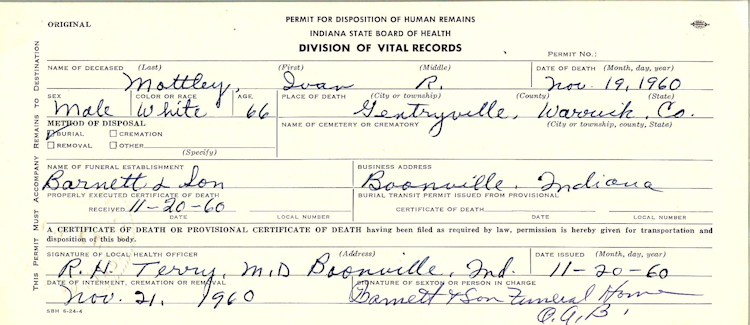 ORIGINAL
PERMIT FOR DISPOSITION OF HUMAN REMAINS
INDIANA STATE BOARD OF HEALTH
DIVISION OF VITAL RECORDS
PERMIT NO.:
NAME OF DECEASED (Last) (First) (Middle) DATE OF DEATH (Month, day, year)
Mottley, Ivan R. Nov. 19, 1960
SEX COLOR OR RACE AGE PLACE OF DEATH (City or township) (County) (State)
Male White 66 Gentryville, Warrick, Co.
METHOD OF DISPOSAL NAME OF CEMETERY OR CREMATORY (City or township, county, State)
BURIAL CREMATION
REMOVAL OTHER
(Specify)
NAME OF FUNERAL ESTABLISHMENT BUSINESS ADDRESS
Barnett & Son Boonville, Indiana
PROPERLY EXECUTED CERTIFICATE OF DEATH BURIAL TRANSIT PERMIT ISSUED FROM PROVISIONAL
RECEIVED 11-20-60 CERTIFICATE OF DEATH
DATE LOCAL NUMBER DATE LOCAL NUMBER
A CERTIFICATE OF DEATH OR PROVISIONAL CERTIFICATE OF DEATH having been filed as required by law, permission is hereby given for transportation and
disposition of this body.
SIGNATURE OF LOCAL HEALTH OFFICER (Address) DATE ISSUED (Month, day, year)
R. H. Terry, M.D Boonville, Ind. 11-20-60
DATE OF INTERMENT, CREMATION OR REMOVAL SIGNATURE OF SEXTON OR PERSON IN CHARGE
Nov. 21, 1960 Barnett & Son Funeral Home
O.A.B.
SBH 6-24-4
THIS PERMIT MUST ACCOMPANY REMAINS TO DESTINATION